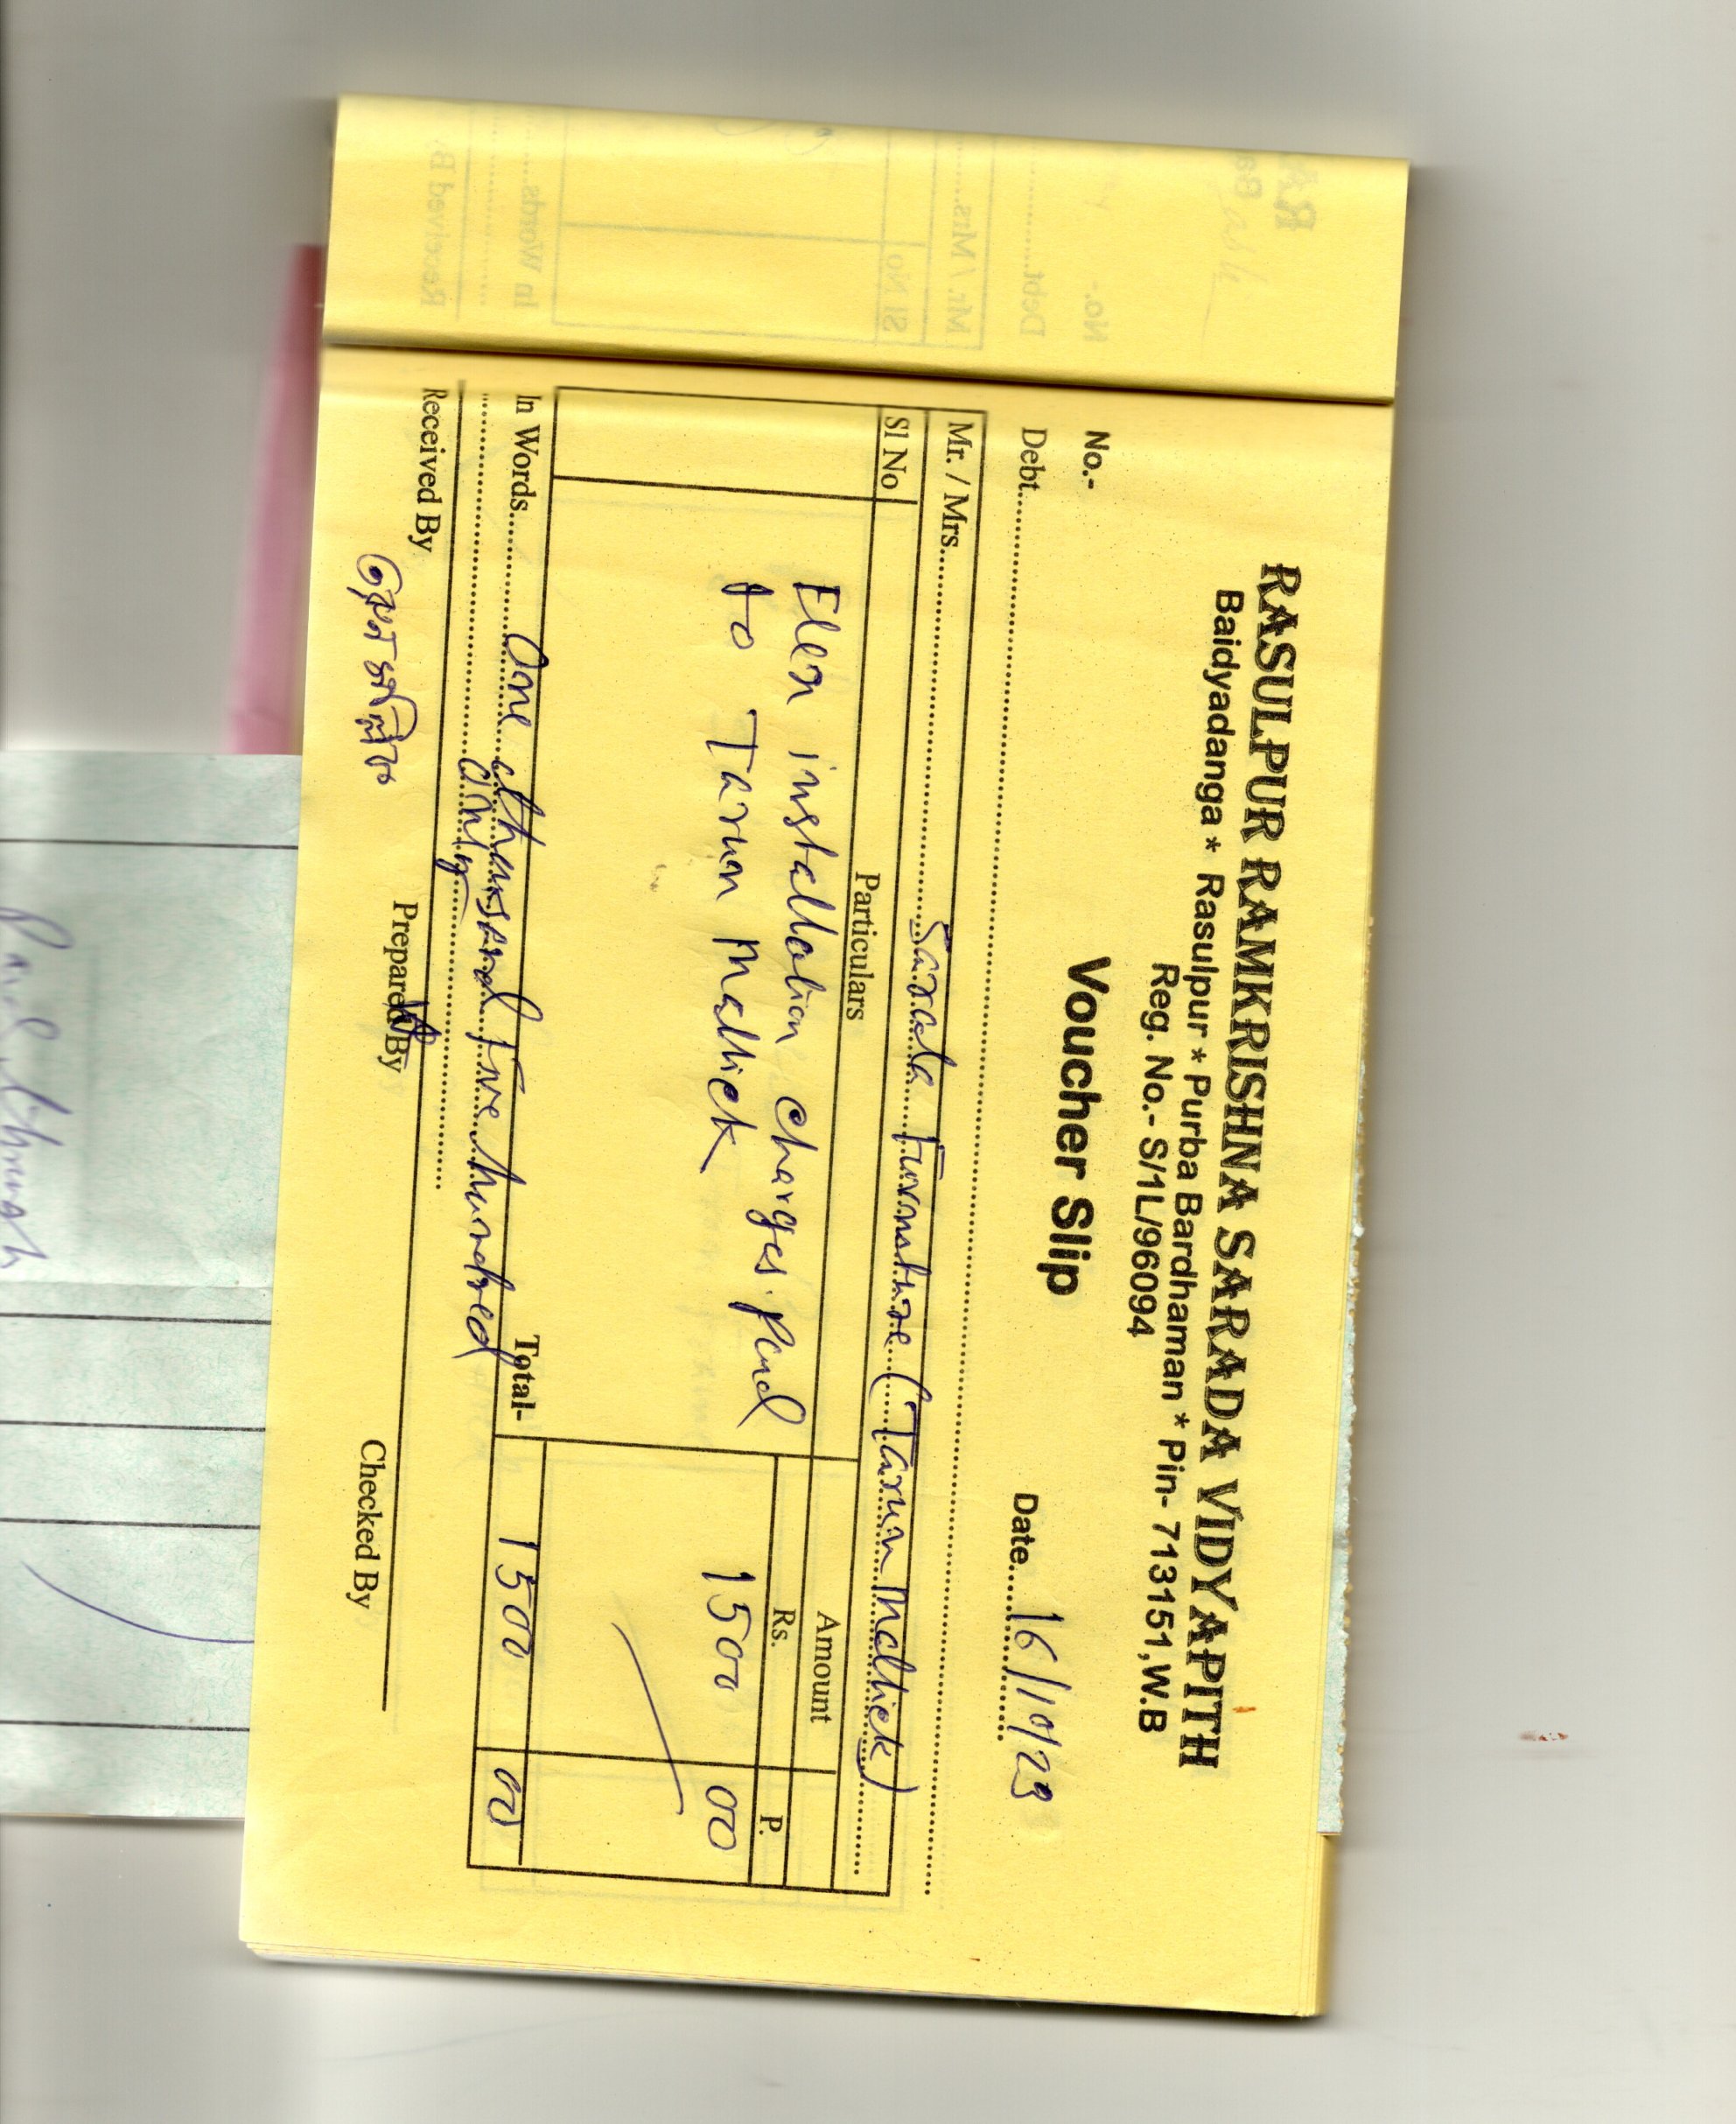 RASULPUR RAMKRISHNA SARADA VIDYAPITH
Baidyadanga * Rasulpur * Purba Bardhaman * Pin- 713151,W.B
Reg. No.- S/1L/96094
Voucher Slip
No.-
Date 16/10/23
Debt
Mr. / Mrs. Sarada Furniture (Tarun Mallick)
Sl No Particulars Amount
Rs. P.
Elen installation charges paid 1500 00
to Tarun Mallick
Total- 1500 00
In Words One thousand five hundred
only
Received By Prepared By Checked By